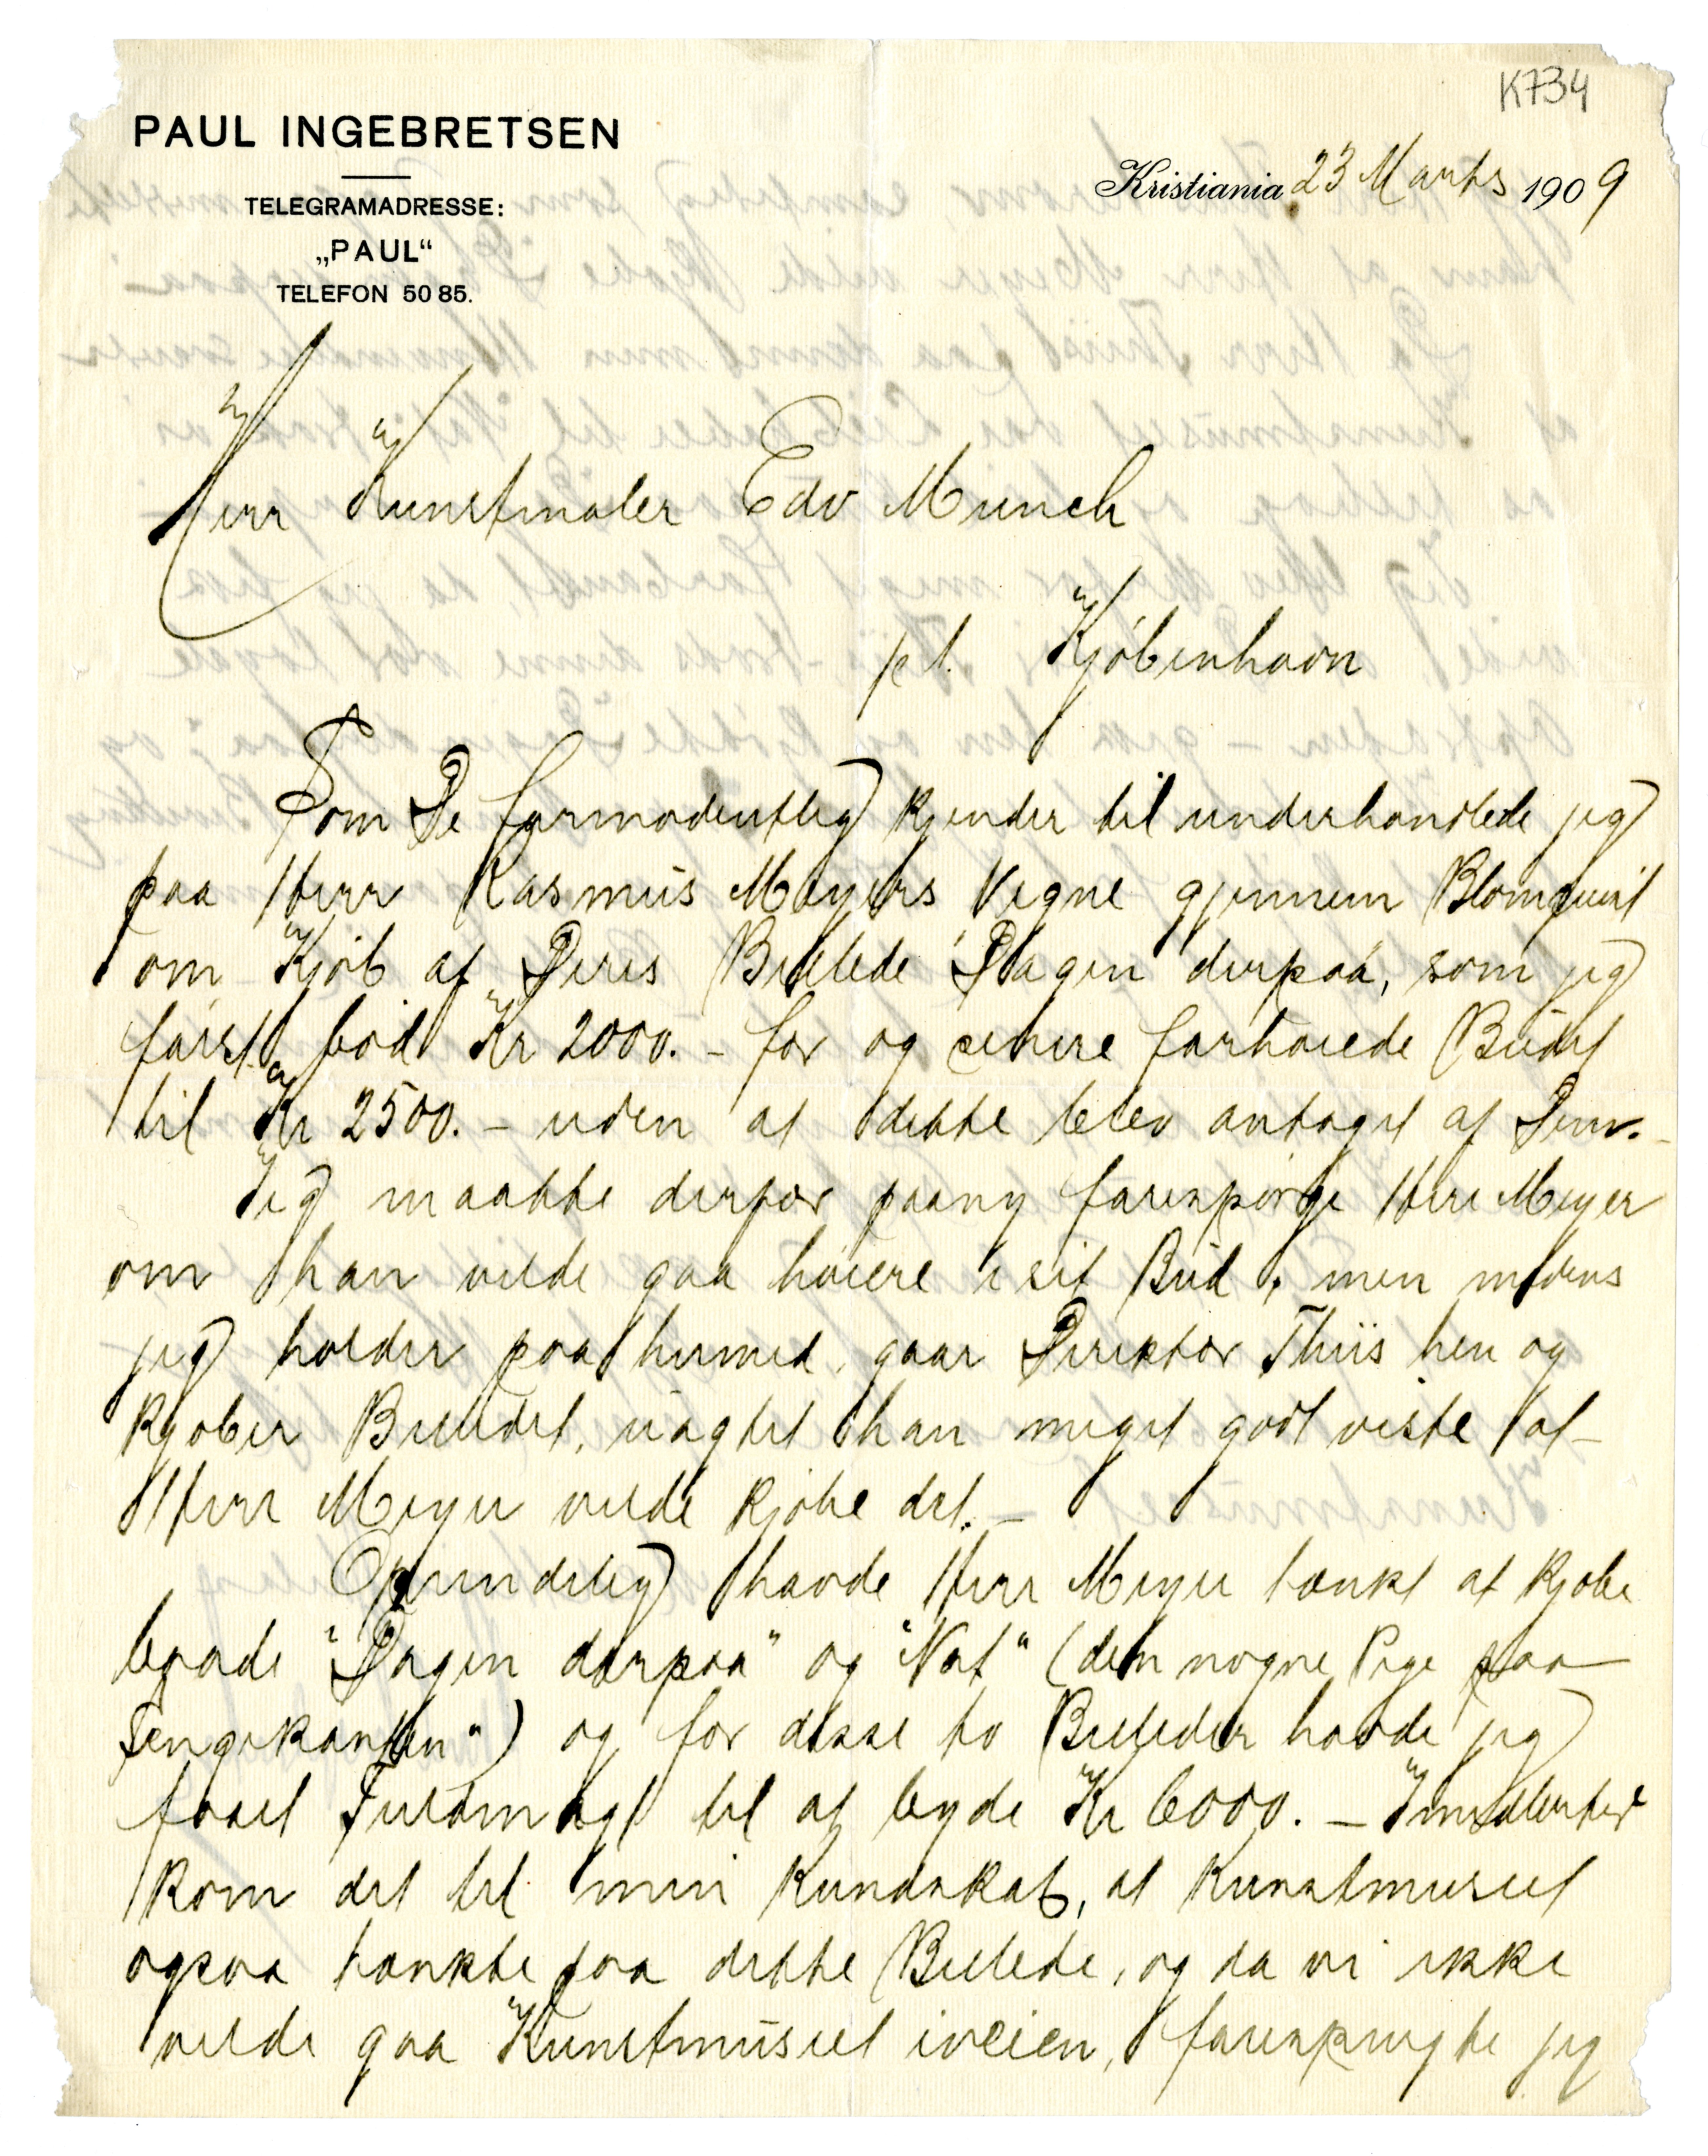 K734
PAUL INGEBRETSEN
TELEGRAMADRESSE:
„PAUL“
TELEFON 50 85.
Kristiania 23 Marts 1909
Herr Kunstmaler Edv Munch
pt. Kjøbenhavn
Som De formodentlig kjender til underhandlede jeg
paa Herr Rasmus Meyers Vegne gjennem Blomquist
om Kjøb af Deres Billede "Dagen derpaa", som jeg
først bød Kr 2000.- for og senere forhøiede Budet
til Kr 2500.- uden at dette blev antaget af Dem.-
Jeg maatte derfor paany forespørge Herr Meyer
om han vilde gaa høiere i sit Bud, men medens
jeg holder paa hermed, gaar Direktør Thiis hen og
kjøber Billedet, uagtet han meget godt viste at
Herr Meyer vilde kjøbe det.-
Oprindelig havde Herr Meyer tænkt at kjøbe
baade "Dagen derpaa" og "Nat" (den nøgne Pige paa
Sengekanten") og for disse to Billeder havde jeg
faaet Fuldmagt til at byde Kr 6000.- Imidlertid
kom det til min Kundskab, at Kunstmuseet
ogsaa tænkte paa dette Billede, og da vi ikke
vilde gaa Kunstmuseet iveien, forespurgte jeg